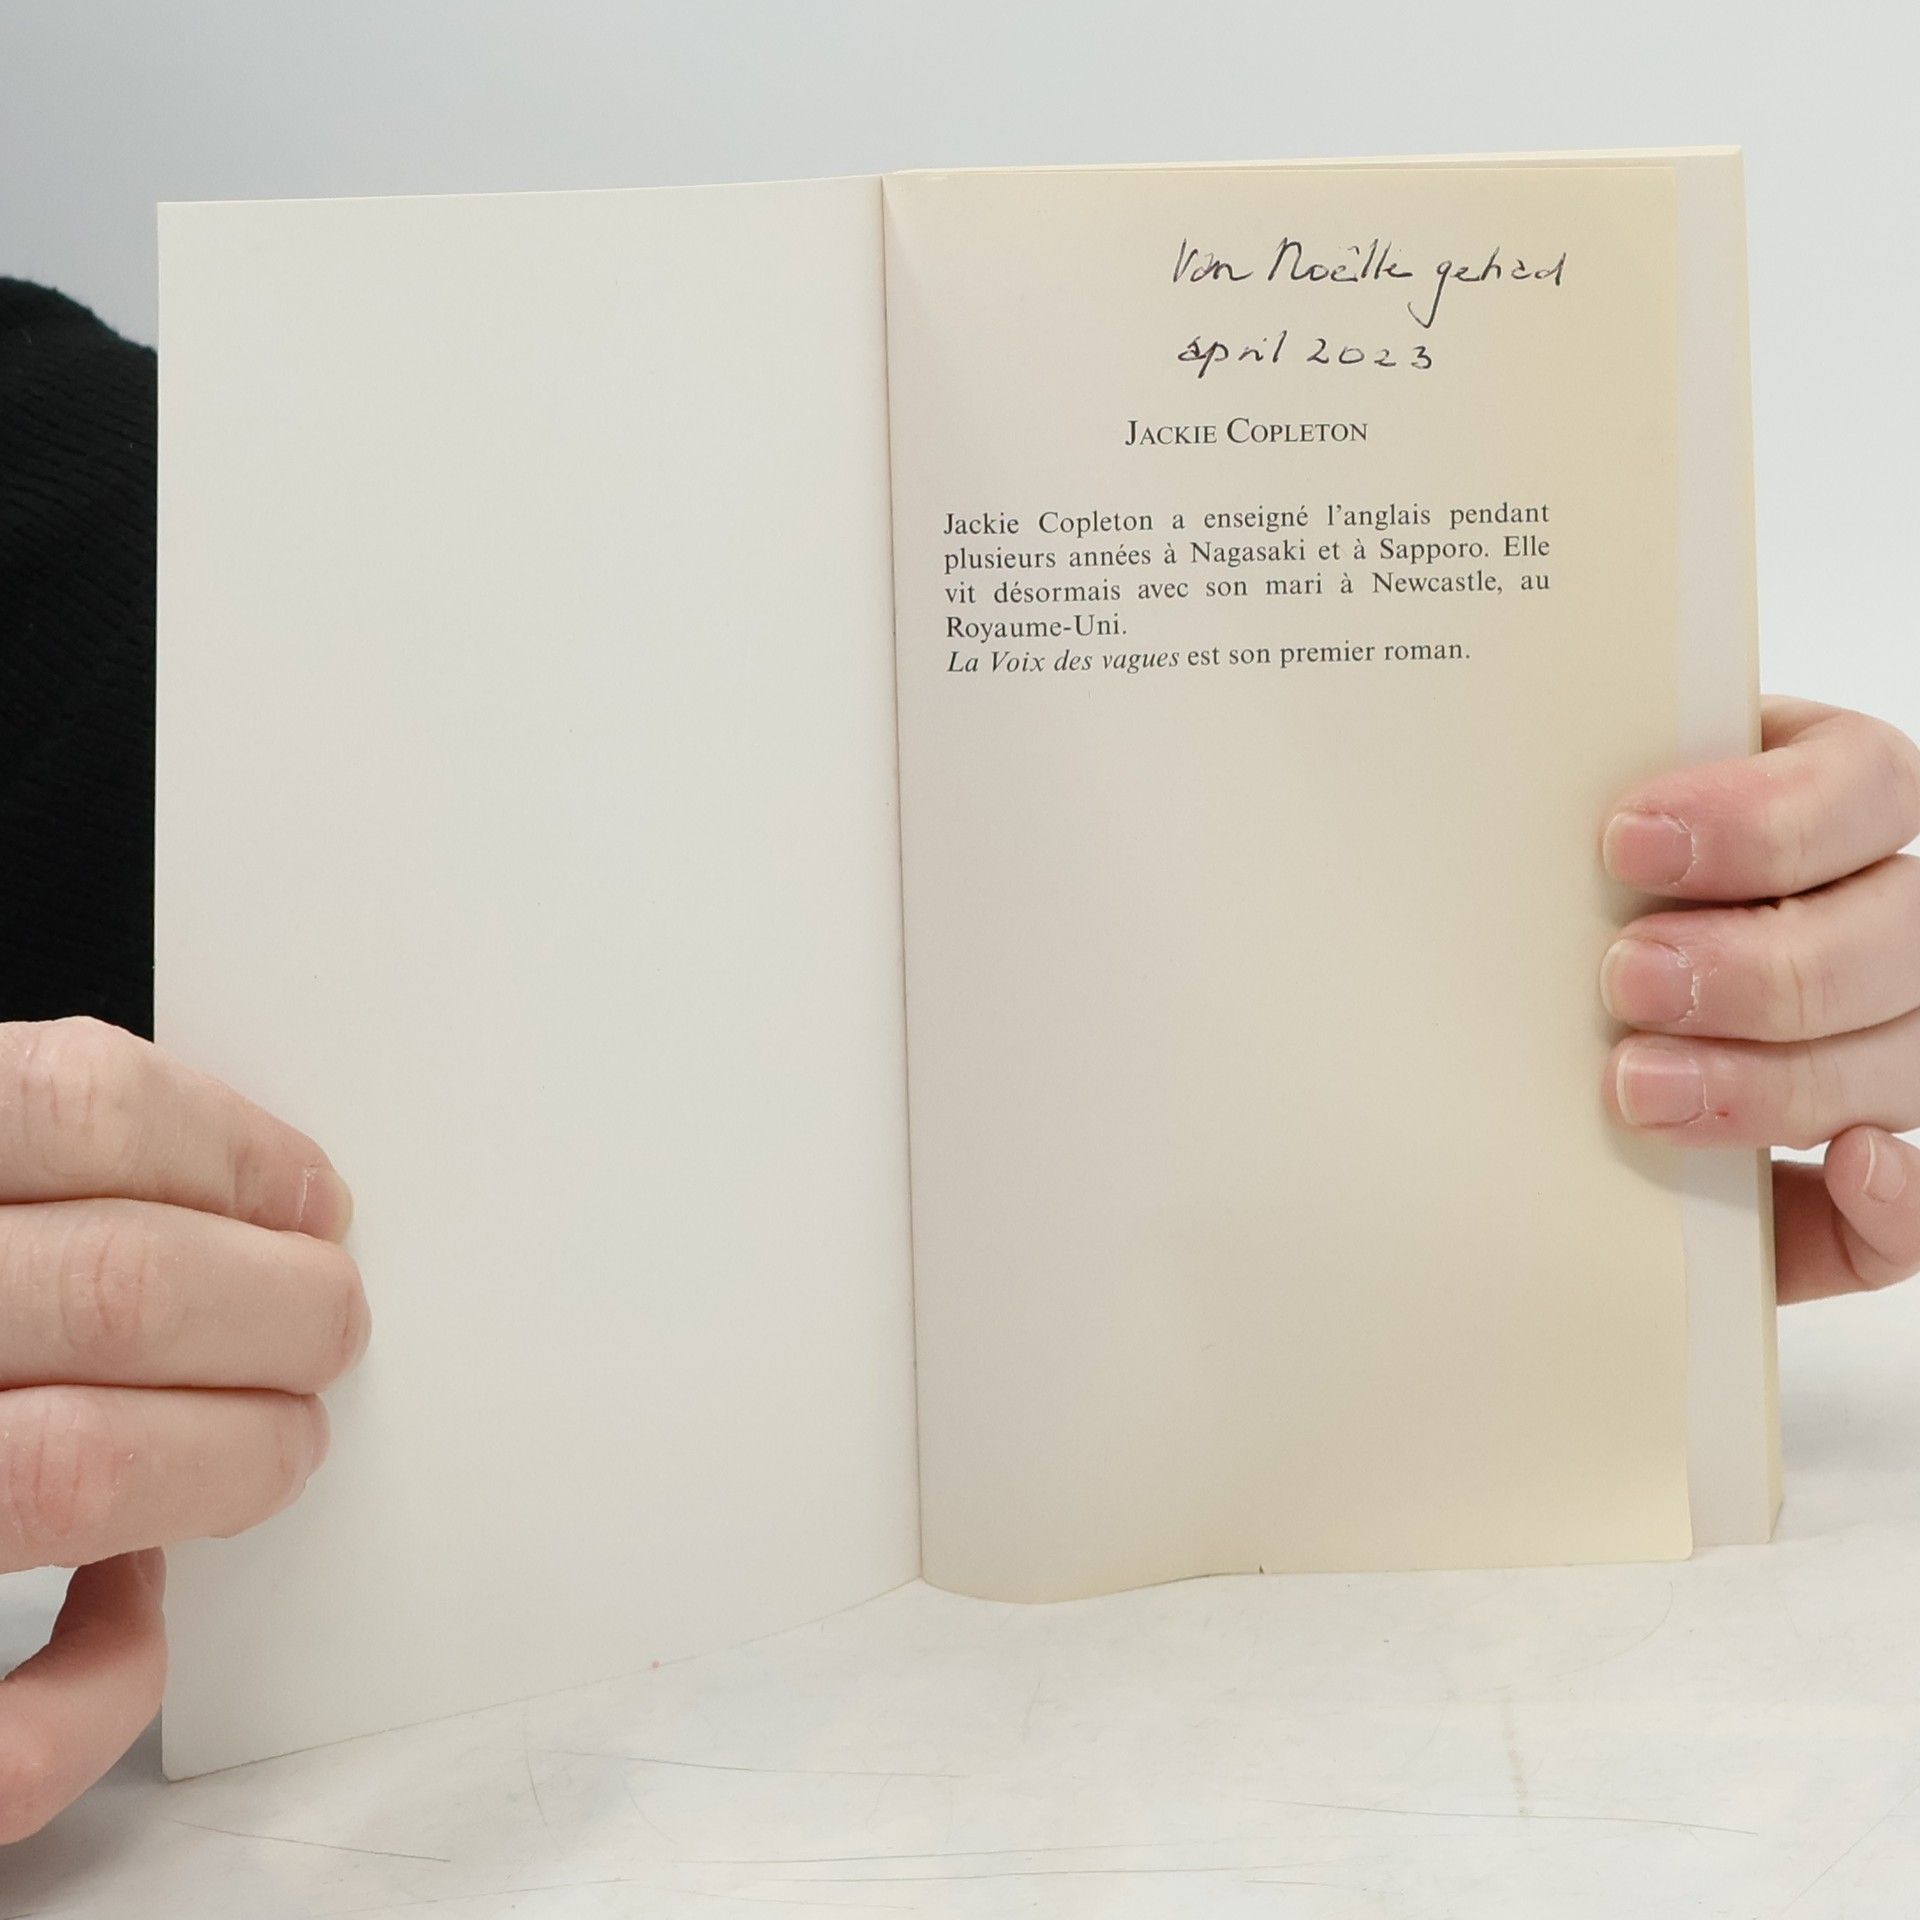 Van Noëlle gehad
april 2023
JACKIE COPLETON
Jackie Copleton a enseigné l'anglais pendant
plusieurs années à Nagasaki et à Sapporo. Elle
vit désormais avec son mari à Newcastle, au
Royaume-Uni.
La Voix des vagues est son premier roman.